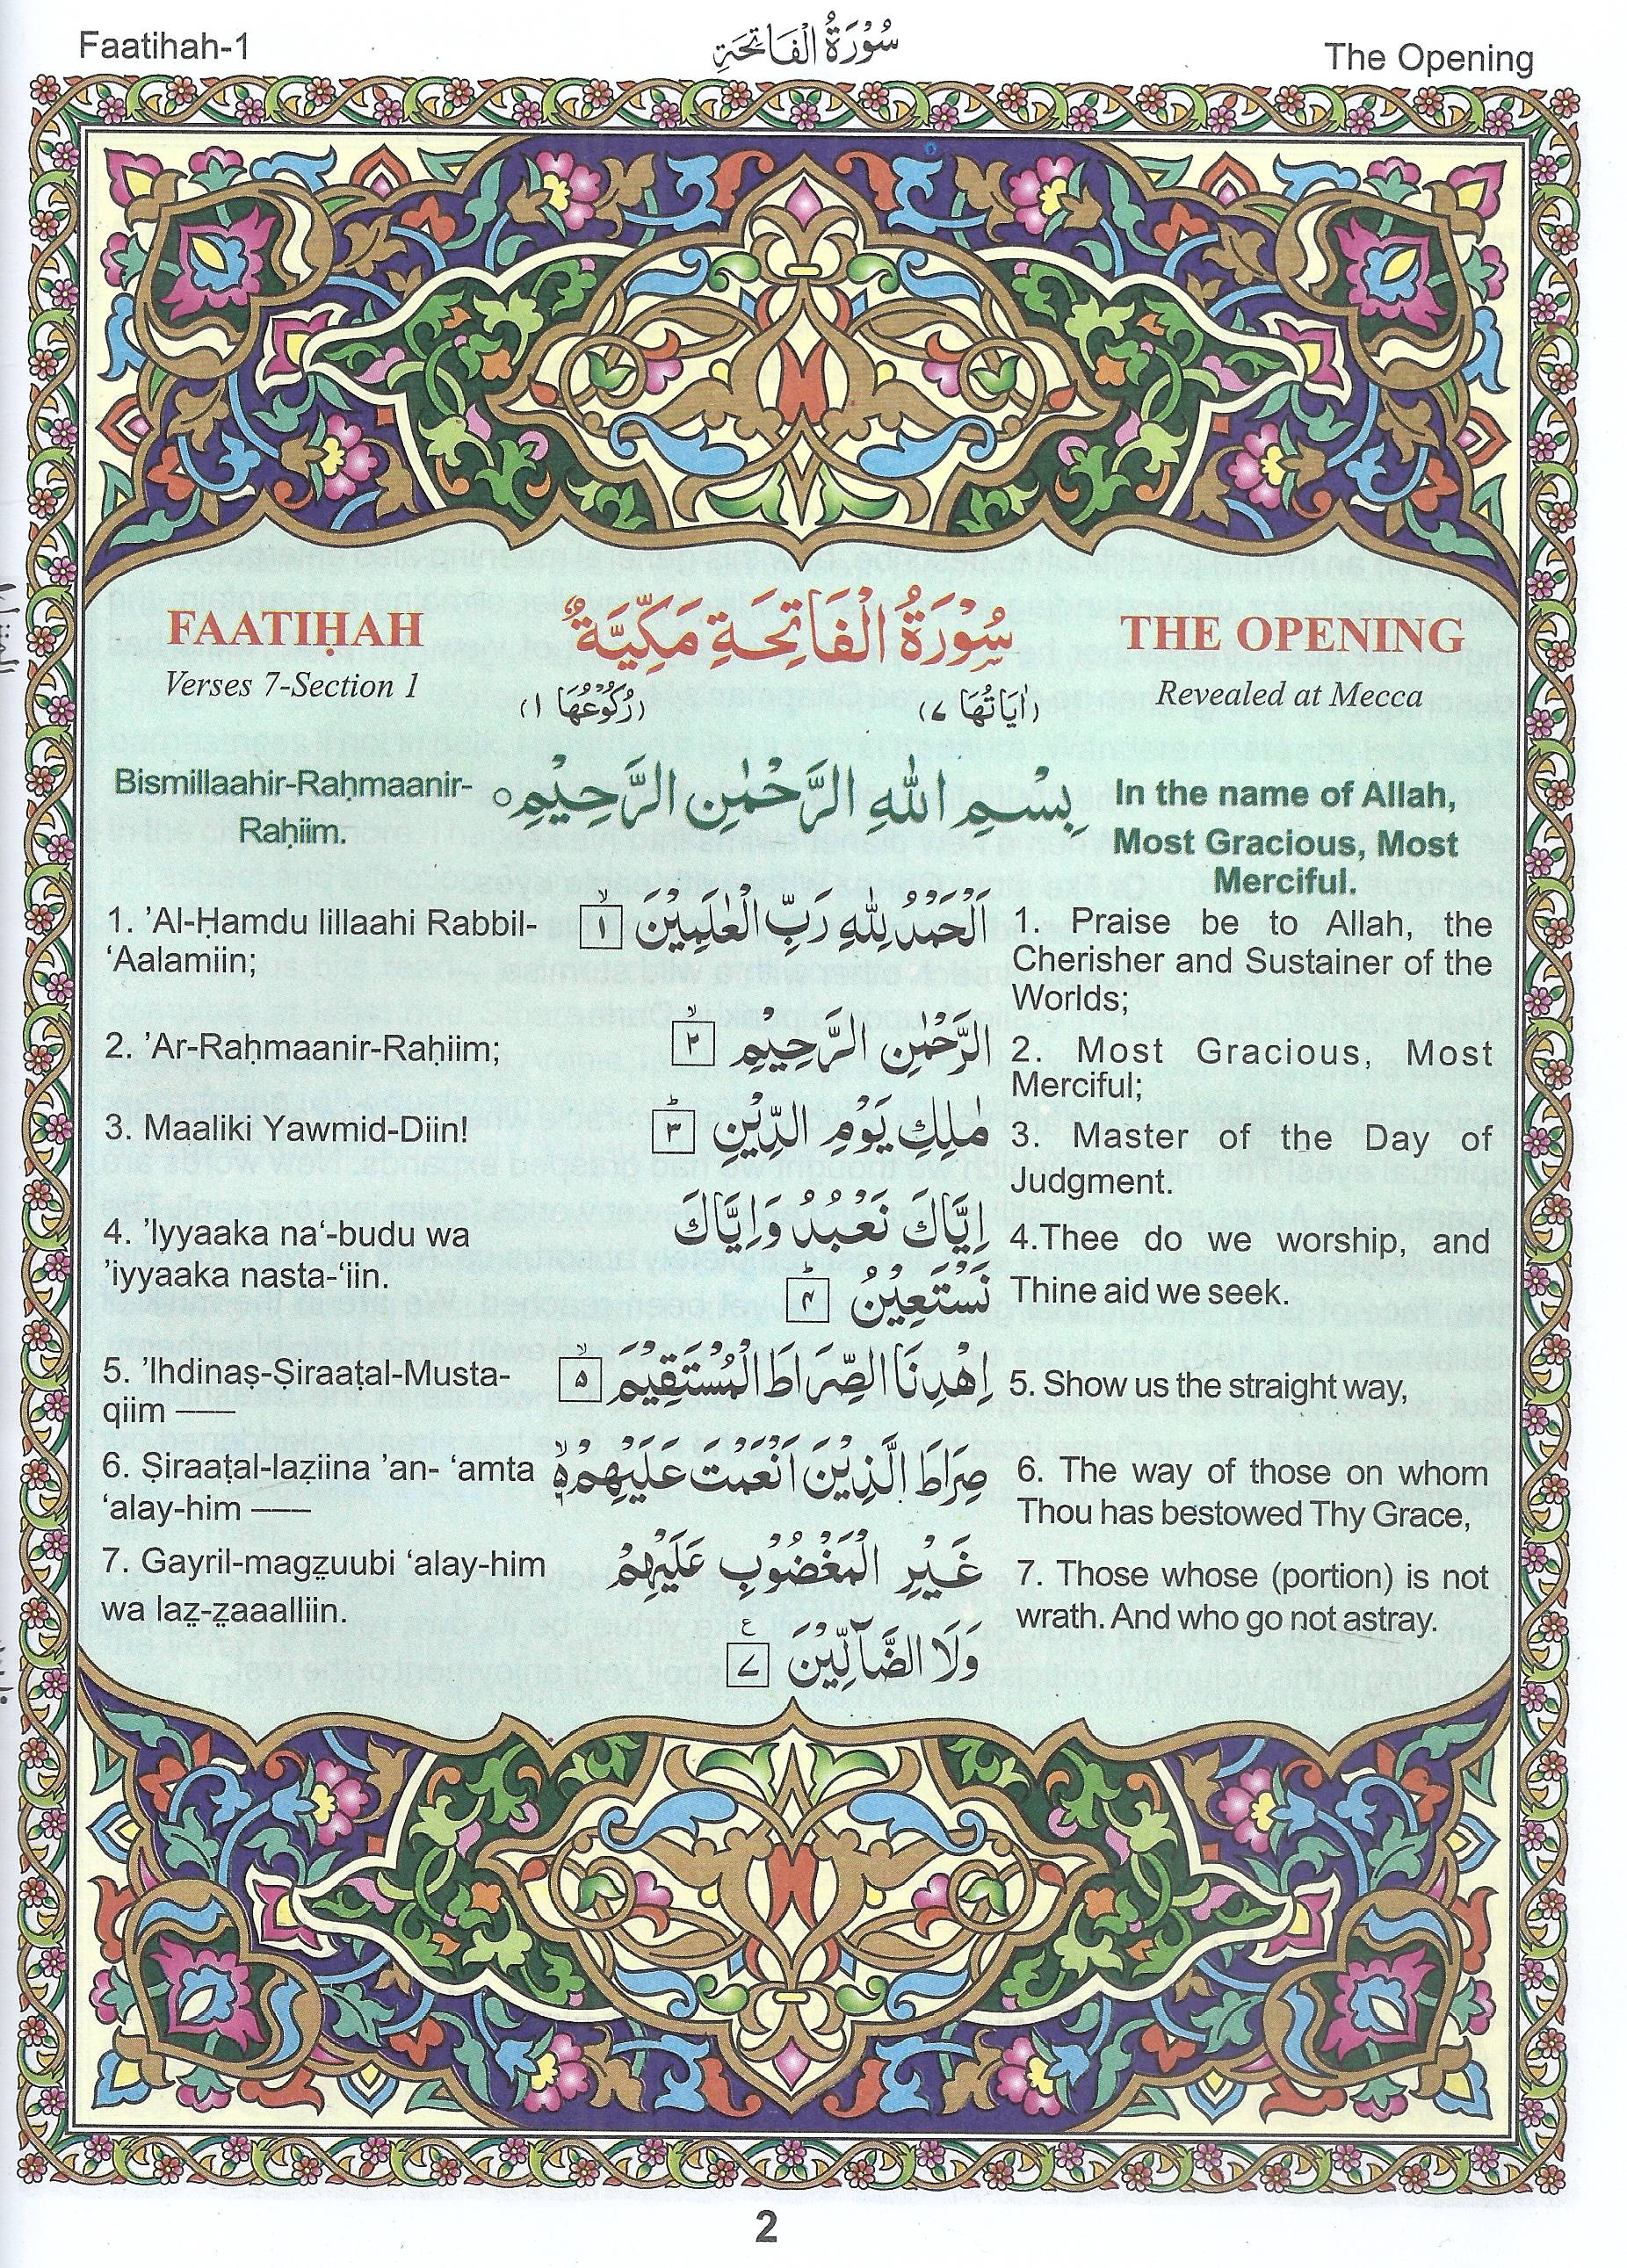 Faatihah-1
سُوْرَةُ الْفَاتِحَةِ
The Opening
FAATIḤAH
سُوْرَةُ الْفَاتِحَةِ مَكِّيَّةٌ
THE OPENING
Verses 7-Section 1
(رُكُوْعُهَا ١)
(اٰيَاتُهَا ٧)
Revealed at Mecca
Bismillaahir-Raḥmaanir-
Raḥiim.
بِسْمِ اللّٰهِ الرَّحْمٰنِ الرَّحِيْمِ
In the name of Allah,
Most Gracious, Most
Merciful.
1. ’Al-Ḥamdu lillaahi Rabbil-
‘Aalamiin;
اَلْحَمْدُ لِلّٰهِ رَبِّ الْعٰلَمِيْنَ ١
1. Praise be to Allah, the
Cherisher and Sustainer of the
Worlds;
2. ’Ar-Raḥmaanir-Raḥiim;
الرَّحْمٰنِ الرَّحِيْمِ ٢
2. Most Gracious, Most
Merciful;
3. Maaliki Yawmid-Diin!
مٰلِكِ يَوْمِ الدِّيْنِ ٣
3. Master of the Day of
Judgment.
4. ’Iyyaaka na‘-budu wa
’iyyaaka nasta-‘iin.
اِيَّاكَ نَعْبُدُ وَاِيَّاكَ
نَسْتَعِيْنُ ٤
4.Thee do we worship, and
Thine aid we seek.
5. ’Ihdinaṣ-Ṣiraaṭal-Musta-
qiim ——
اِهْدِنَا الصِّرَاطَ الْمُسْتَقِيْمَ ٥
5. Show us the straight way,
6. Ṣiraaṭal-laziina ’an- ‘amta
‘alay-him ——
صِرَاطَ الَّذِيْنَ اَنْعَمْتَ عَلَيْهِمْ ٦
6. The way of those on whom
Thou has bestowed Thy Grace,
7. Gayril-magẓuubi ‘alay-him
wa laẓ-ẓaaalliin.
غَيْرِ الْمَغْضُوْبِ عَلَيْهِمْ
وَلَا الضَّآلِّيْنَ ٧
7. Those whose (portion) is not
wrath. And who go not astray.
2